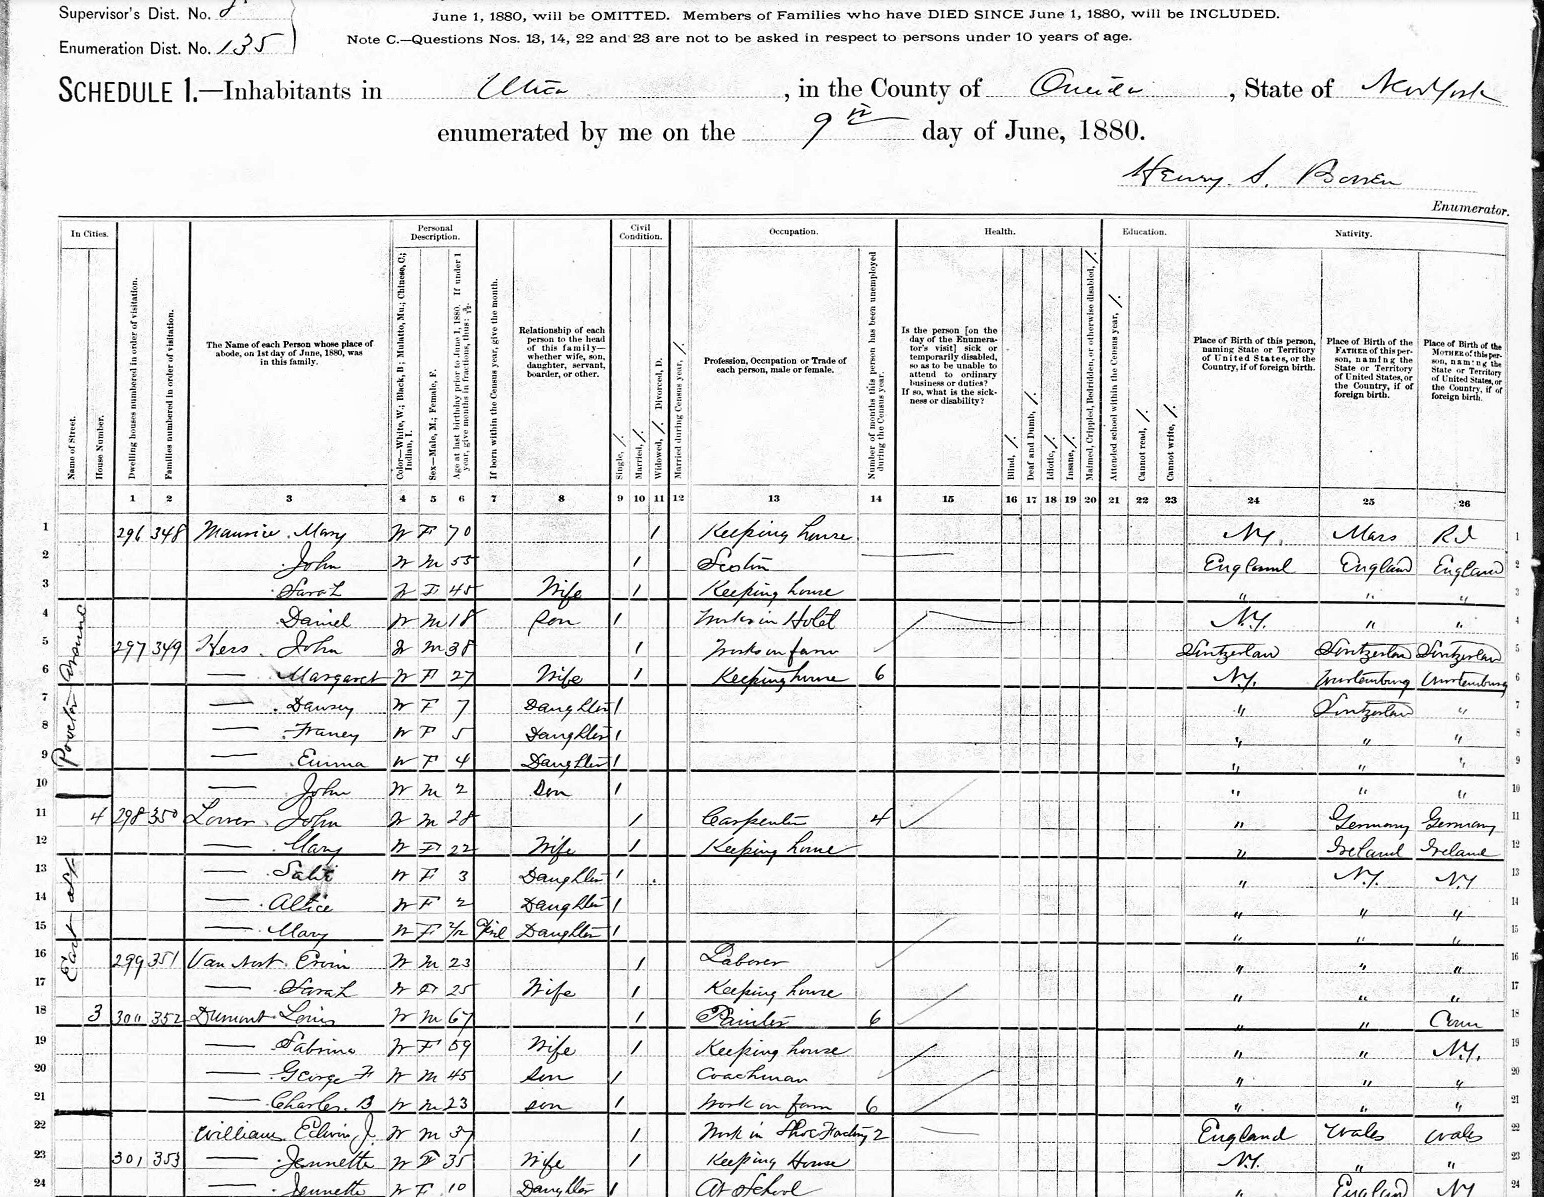 Supervisor's Dist. No.
Enumeration Dist. No. 135
June 1, 1880, will be OMITTED. Members of Families who have DIED SINCE June 1, 1880, will be INCLUDED.
Note C.—Questions Nos. 13, 14, 22 and 23 are not to be asked in respect to persons under 10 years of age.
SCHEDULE 1.—Inhabitants in Utica, in the County of Oneida, State of New York
enumerated by me on the 9th day of June, 1880.
Henry S.
Enumerator.
In Cities. Personal Description. Civil Condition. Occupation. Health. Education. Nativity.
Name of Street.
House Number.
Dwelling houses numbered in order of visitation.
Families numbered in order of visitation.
The Name of each Person whose place of abode, on 1st day of June, 1880, was in this family.
Color—White, W.; Black, B.; Mulatto, Mu.; Chinese, C.; Indian, I.
Sex—Male, M.; Female, F.
Age at last birthday prior to June 1, 1880. If under 1 year, give months in fractions, thus:
If born within the Census year, give the month.
Relationship of each person to the head of this family—whether wife, son, daughter, servant, boarder, or other.
Single, /.
Married, /.
Widowed, /. Divorced, D.
Married during Census year, /.
Profession, Occupation or Trade of each person, male or female.
Number of months this person has been unemployed during the Census year.
Is the person [on the day of the Enumerator's visit] sick or temporarily disabled, so as to be unable to attend to ordinary business or duties? If so, what is the sickness or disability?
Blind, /.
Deaf and Dumb, /.
Idiotic, /.
Insane, /.
Maimed, Crippled, Bedridden, or otherwise disabled, /.
Attended school within the Census year, /.
Cannot read, /.
Cannot write, /.
Place of Birth of this person, naming State or Territory of United States, or the Country, if of foreign birth.
Place of Birth of the FATHER of this person, naming the State or Territory of United States, or the Country, if of foreign birth.
Place of Birth of the MOTHER of this person, naming the State or Territory of United States, or the Country, if of foreign birth.
1 2 3 4 5 6 7 8 9 10 11 12 13 14 15 16 17 18 19 20 21 22 23 24 25 26
1 296 348 Maurice Mary W F 70 / Keeping house N.Y. Mass R.I 1
2 John W M 55 / Sexton England England England 2
3 Sarah W F 45 Wife / Keeping house " " " 3
4 Daniel W M 18 Son / Works in Hotel N.Y. " " 4
5 297 349 Hess John W M 38 / Works on farm Switzerlan Switzerlan Switzerlan 5
6 — Margaret W F 27 Wife / Keeping house 6 N.Y. Wurtemburg Wurtemburg 6
7 — W F 7 Daughter / " Switzerlan " 7
8 — Franey W F 5 Daughter / " " " 8
9 — Emma W F 4 Daughter / " " " 9
10 John W M 2 Son / " " " 10
11 4 298 350 John W M 28 / Carpenter 4 " Germany Germany 11
12 — Mary W F 22 Wife / Keeping house " Ireland Ireland 12
13 — W F 3 Daughter / " N.Y. N.Y 13
14 — Alice W F 2 Daughter / " " " 14
15 — Mary W F 2/12 Daughter / " " " 15
16 299 351 Van Nort Ervin W M 23 / Laborer " " " 16
17 — Sarah W F 25 Wife / Keeping house " " " 17
18 3 300 352 Dumont Louis W M 67 / Painter 6 " " Conn 18
19 — Sabrina W F 59 Wife / Keeping house " " N.Y. 19
20 — George F W M 45 Son / Coachman " " " 20
21 — Charles B W M 23 Son / Work on farm 6 " " " 21
22 Williams Edwin J. W M 37 / Work in Shoe Factory 2 England Wales Wales 22
23 301 353 — Jennette W F 35 Wife / Keeping House N.Y. " " 23
24 — Jennette W F 10 Daughter / At School " England N.Y 24
Proctor Avenue
East